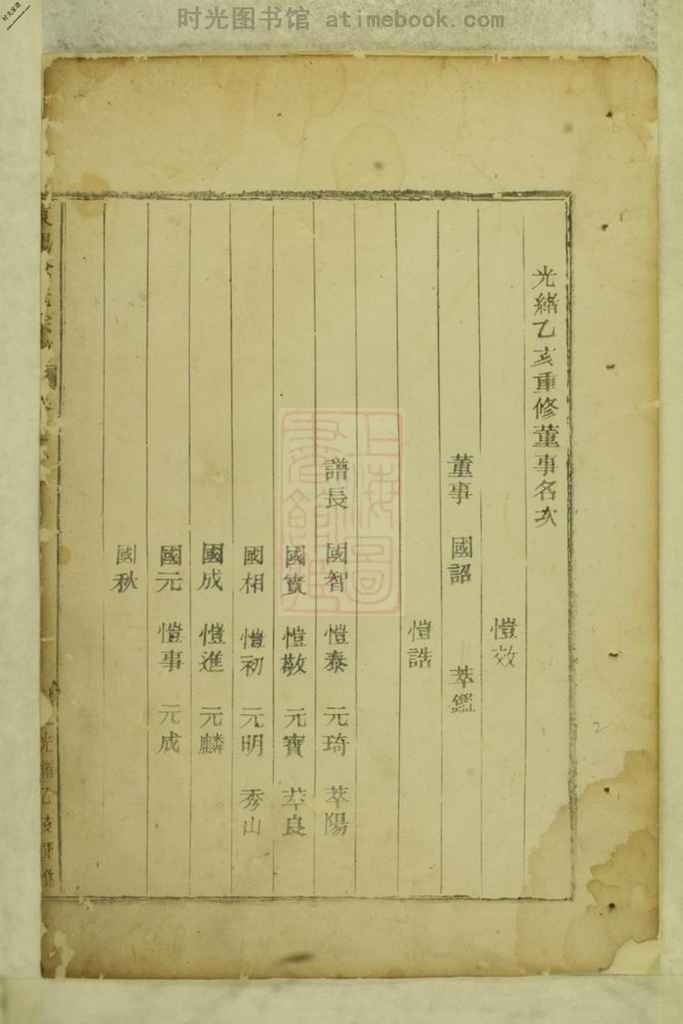 时光图书馆 atimebook.com
光緒乙亥重修董事名次
愷效
董事 國詔 萃鑑
愷誥
譜長 國智 愷泰 元琦 萃陽
國賓 愷敬 元寶 萃良
國相 愷初 元明 秀山
國成 愷進 元麟
國元 愷事 元成
國秋